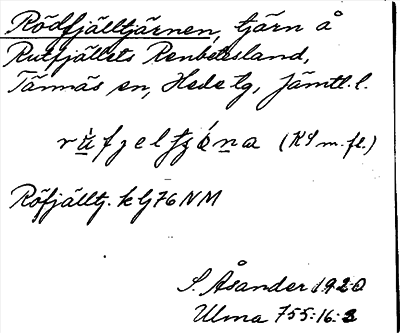 Rödfjälltjärnen, tjärn å
Rutfjällets Renbetesland,
Tännäs sn, Hede tg, Jämtl. l.
(KL m. fl.)
Röfjälltj. k bl 76 NM
S. Åsander 1920
Ulma 755:16:3